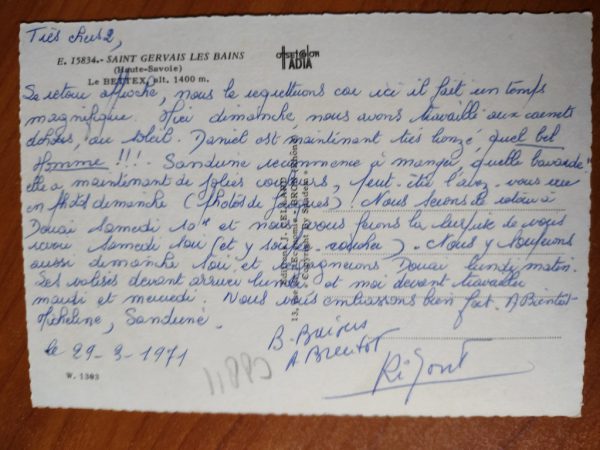 Très chers 2,
E. 15834.- SAINT GERVAIS LES BAINS
(Haute-Savoie)
Le BETTEX, alt. 1400 m.
Le retour approche, nous le regrettons car ici il fait un temps
magnifique. Hier dimanche nous avons travaillé aux carnets
dehors, au soleil. Daniel est maintenant très bronzé, quel bel
Homme !!! Sandrine recommence à manger quelle bavarde
elle a maintenant de jolies couleurs, peut-être l'avez-vous vue
en photo dimanche (photos de ). Nous serons de retour à
Douai Samedi 10 et nous vous ferons la surprise de vous
revoir samedi soir (et y coucher). Nous y
aussi dimanche soir, et Douai lundi matin.
Les valises devant arriver lundi et moi devant travailler
mardi et mercredi. Nous vous embrassons bien fort. A Bientôt
Micheline, Sandrine.
B. Baisers
A Bientôt
le 29-3-1971
W. 1303